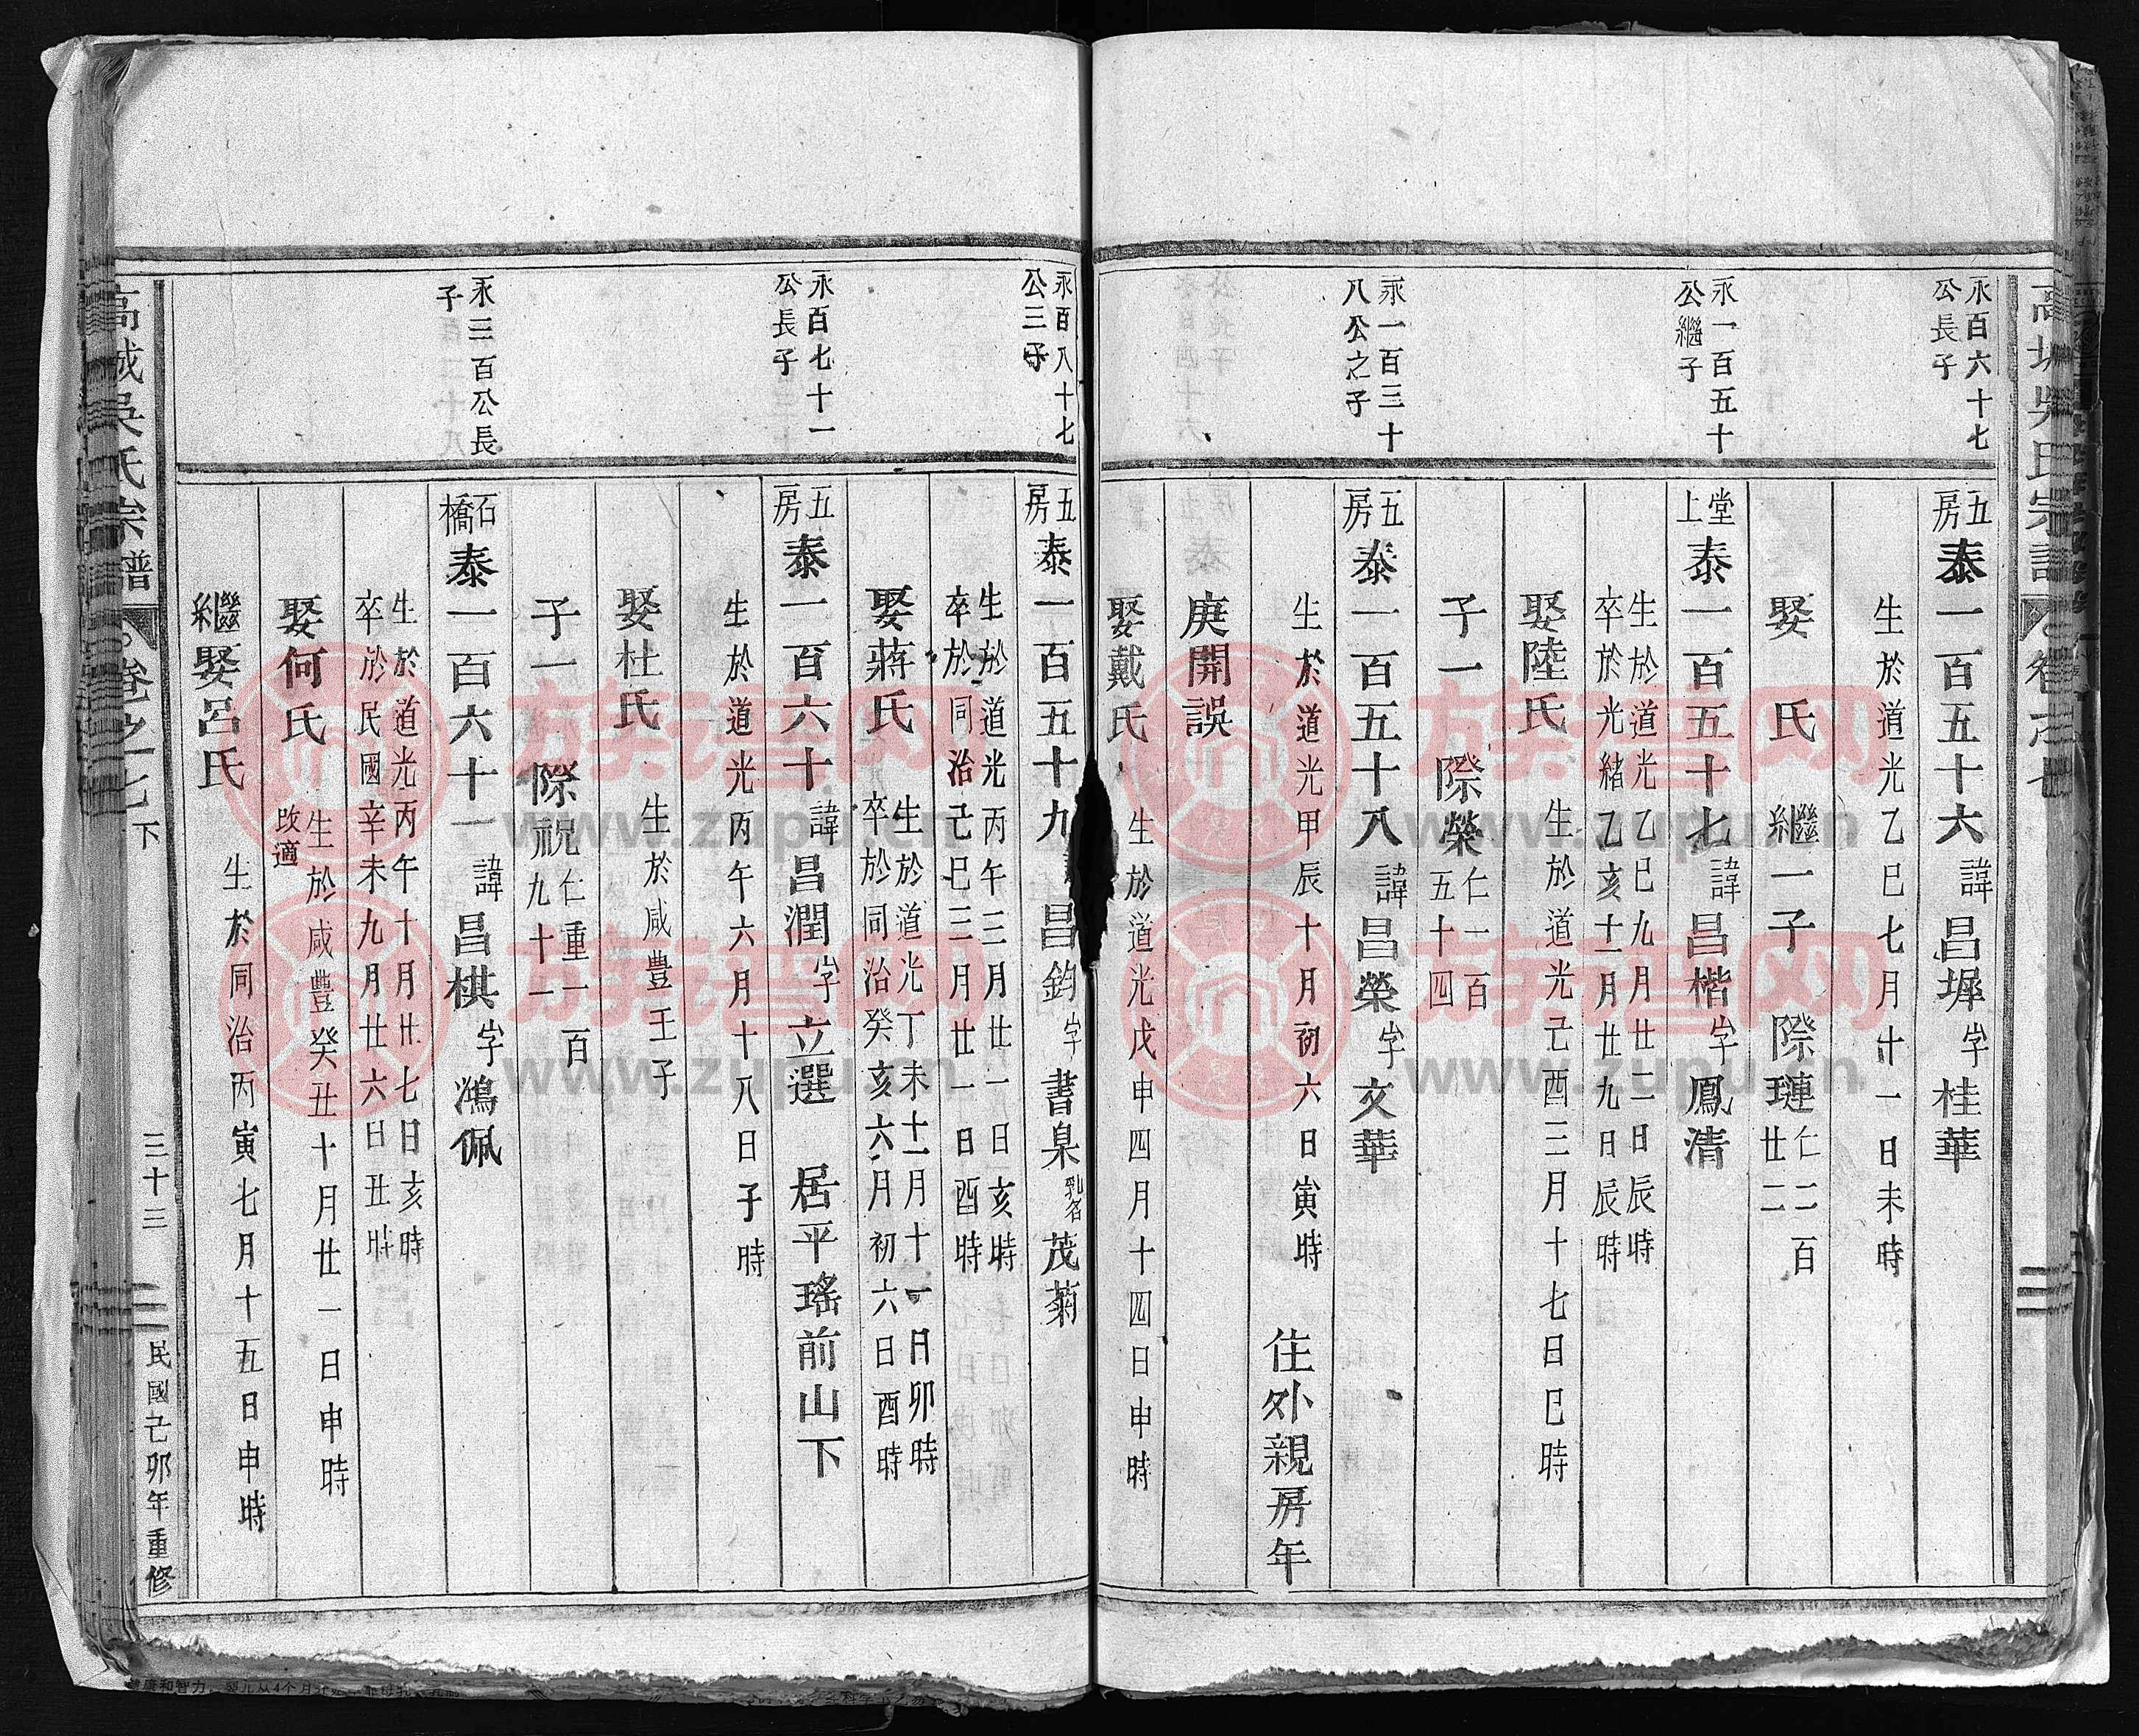 永百六十七
公長子
五房泰一百五十六諱昌墀字桂華
生於道光乙巳七月廿一日未時
娶 氏 繼一子 際璉仁二百廿二
永一百五十
公繼子
堂上泰一百五十七諱昌楷字鳳清
生於道光乙巳九月廿二日辰時
卒於光緒乙亥十二月廿九日辰時
娶陸氏 生於道光己酉三月十七日巳時
子一 際榮仁一百五十四
永一百三十
八公之子
五房泰一百五十八諱昌榮字文華
生於道光甲辰十月初六日寅時 住外親房年
庚開誤
娶戴氏 生於道光戊申四月十四日申時
永百八十七
公三子
五房泰一百五十九 昌鈞字書臬乳名茂菊
生於道光丙午三月廿一日亥時
卒於同治己巳三月廿一日酉時
娶蔣氏 生於道光丁未十二月十一日卯時
卒於同治癸亥六月初六日酉時
永百七十一
公長子
五房泰一百六十諱昌潤字立選 居平瑤前山下
生於道光丙午六月十八日子時
娶杜氏 生於咸豐壬子
子一 際祝仁重一百九十一
永三百公長
子
石橋泰一百六十一諱昌棋字鴻佩
生於道光丙午十月廿七日亥時
卒於民國辛未九月廿六日丑時
娶何氏 生於咸豐癸丑十月廿一日申時
改適
繼娶呂氏 生於同治丙寅七月十五日申時
高城吳氏宗譜 卷之七下 三十三 民國己卯年重修
族谱网
www.zupu.cn
族谱网
www.zupu.cn
族谱网
www.zupu.cn
族谱网
www.zupu.cn